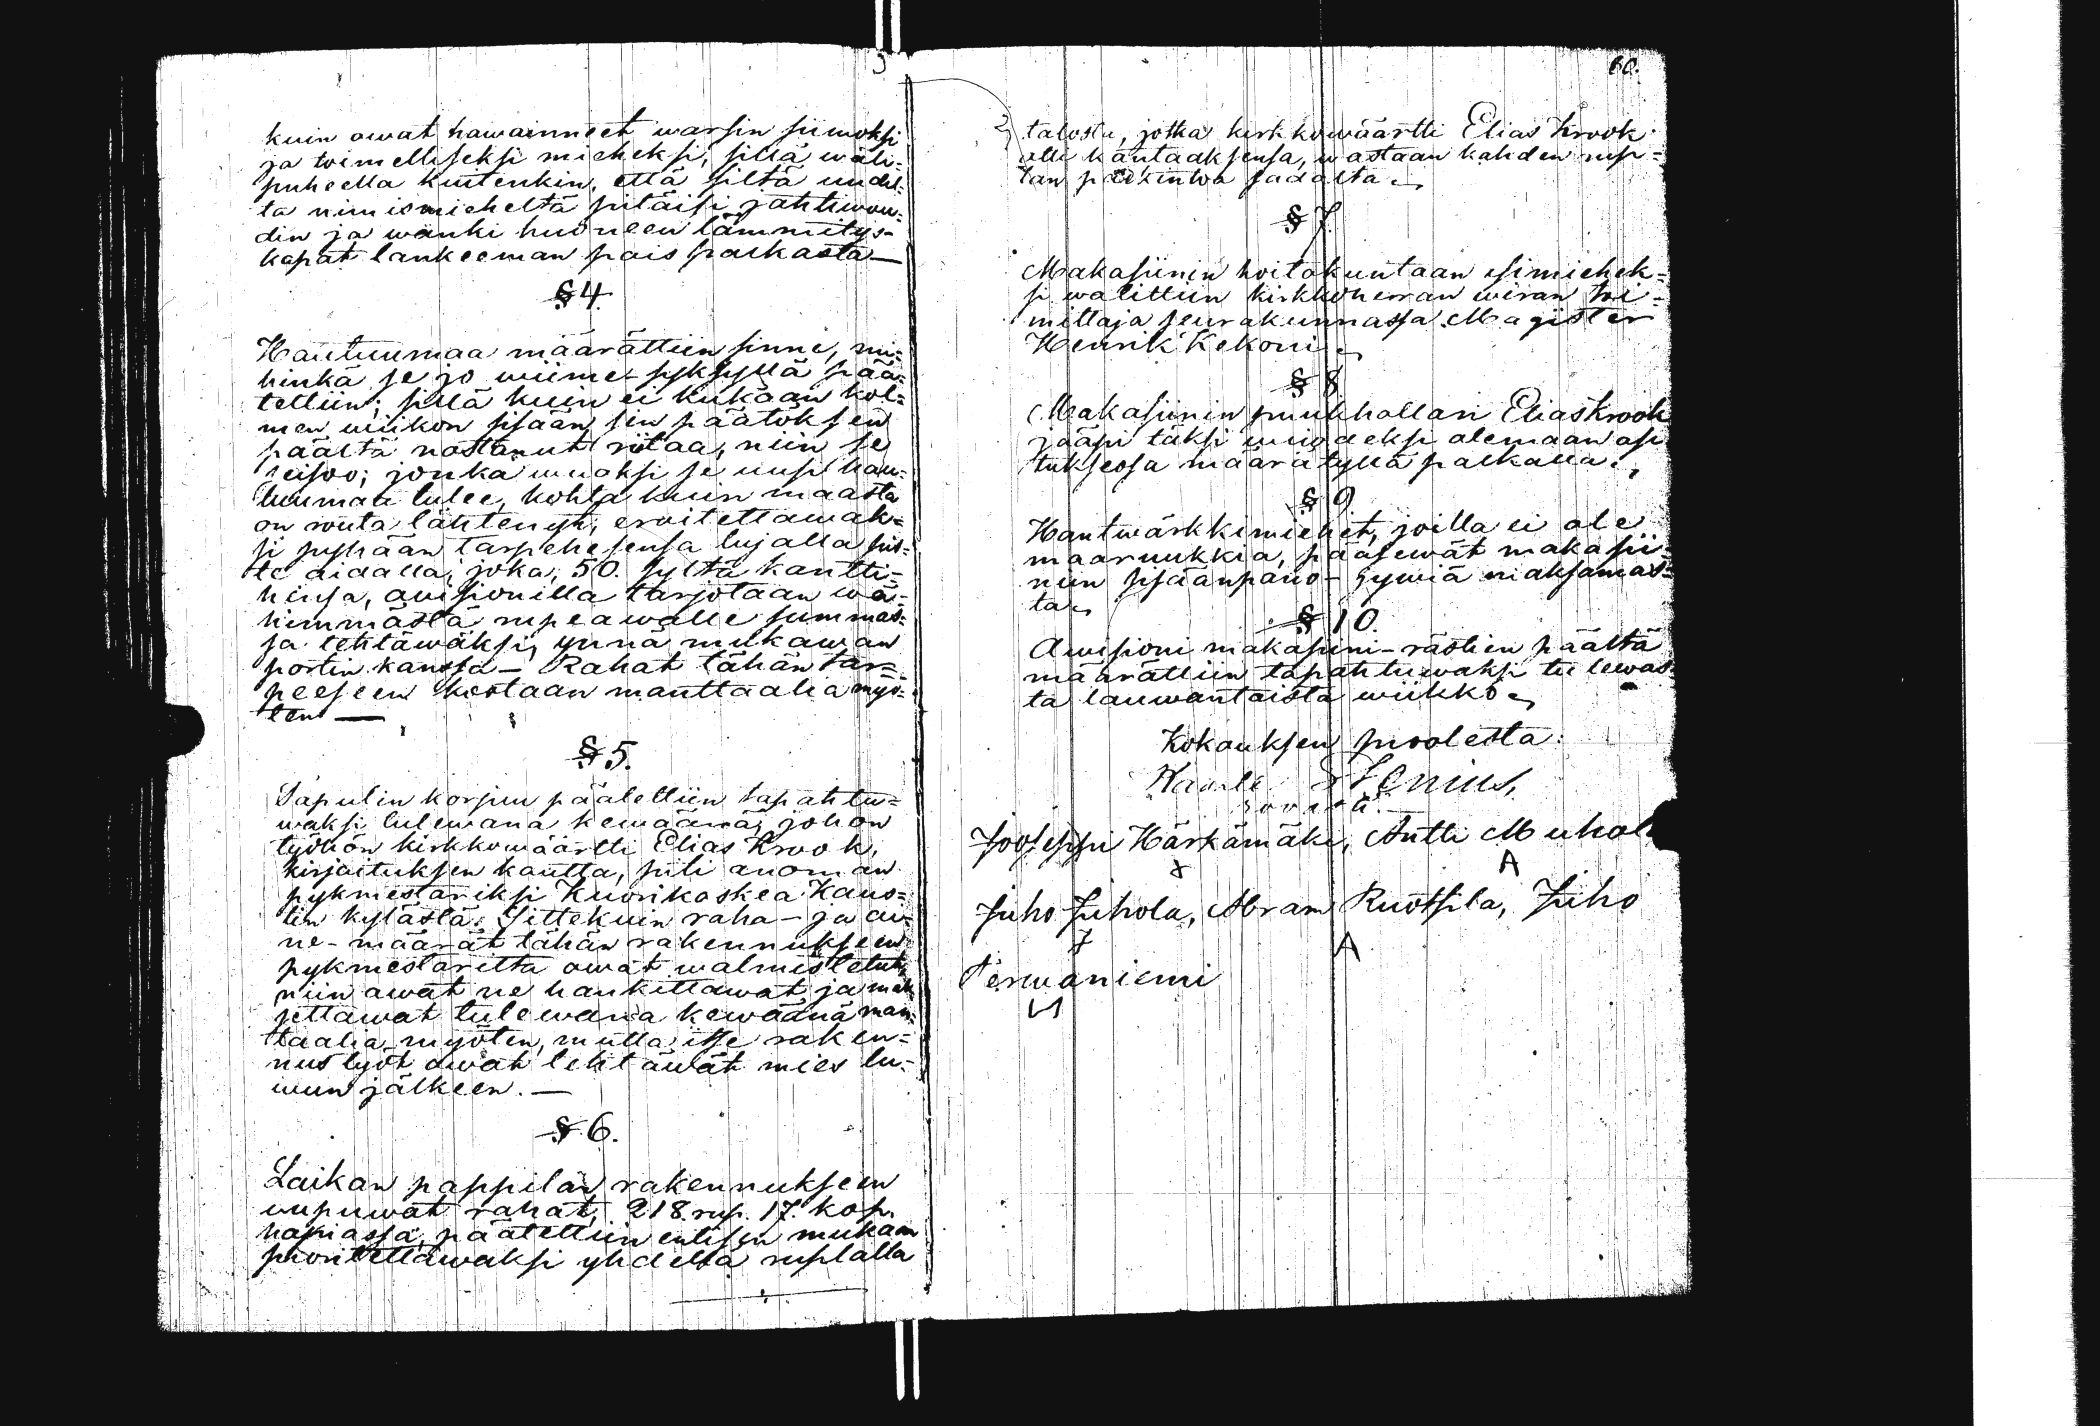 kuin owat hawainneet warsin siiwoksi
ja toimelliseksi mieheksi, sillä wäli-
puheella kuitenkin, että siltä uudel-
ta nimismieheltä pitäisi jahtiwou-
din ja wanki huoneen lämmitys-
kapat lankeeman pois palkasta —
§ 4.
Hautuumaa määrättiin sinne, mi-
hinkä se jo wiime-syksyllä pää-
tettiin; sillä kuin ei kukaan kol-
men wiikon sisään sen päätöksen
päältä nostanut riitaa, niin se
seisoo; jonka wuoksi se uusi hau-
tuumaa tulee, kohta kuin maasta
on routa lähtenyt, eroitettawak-
si pyhään tarpeheseensa lujalla pis-
te aidalla, joka, 50. syltä kantti-
hinsa, auksionilla tarjotaan wä-
himmästä rupeawalle summas-
sa tehtäwäksi, ynnä mukawan
portin kanssa — Rahat tähän tar-
peeseen kootaan manttaalia myö-
ten —
§ 5.
Tapulin korjuu päätettiin tapahtu-
waksi tulewana kewäänä, johon
työhön kirkkowäärtti Elias Krook,
kirjoituksen kautta, piti anoman
pykmestariksi Kuorikoskea Kaus-
tin kylästä. Sittekuin raha- ja ai-
ne-määrät tähän rakennukseen
pykmestarilta owat walmistetut,
niin owat ne hankittawat ja mak-
settawat tulewana kewäänä man-
taalia myöten, mutta itse raken-
nus työt owat tehtäwät mies lu-
wun jälkeen. —
§ 6.
Laikan pappilan rakennukseen
uupuwat rahat, 218. rup. 17. kop.
hopiassa, päätettiin entisen mukaan
suoritettawaksi yhdeltä ruplalla
60.
talosta, jotka kirkkowäärtti Elias Krook
otti kantaaksensa, wastaan kahden rup-
lan palkintoa sadalta.
§ 7
Makasiinin hoitokuntaan esimiehek-
si walittiin kirkkoherran wiran toi-
mittaja seurakunnassa Magister
Henrik Kekoni.
§ 8
Makasiinin puukhollari Elias Krook
jääpi täksi wuodeksi olemaan asi
tuksessa määrätyllä palkalla.
§ 9
Hantwärkkimiehet, joilla ei ole
maaruukkia, pääsewät makasii-
niin sisäänpano-jywiä maksamas-
ta.
§ 10.
Auksioni makasiini-rästien päältä
määrättiin tapahtuwaksi tulewas-
ta lauwantaista wiikko.
Kokouksen puolesta:
Jooseppi Härkämäki, Antti Muhol
A
Juho Juhola, Abram Ruotsila, Juho
A
Terwaniemi